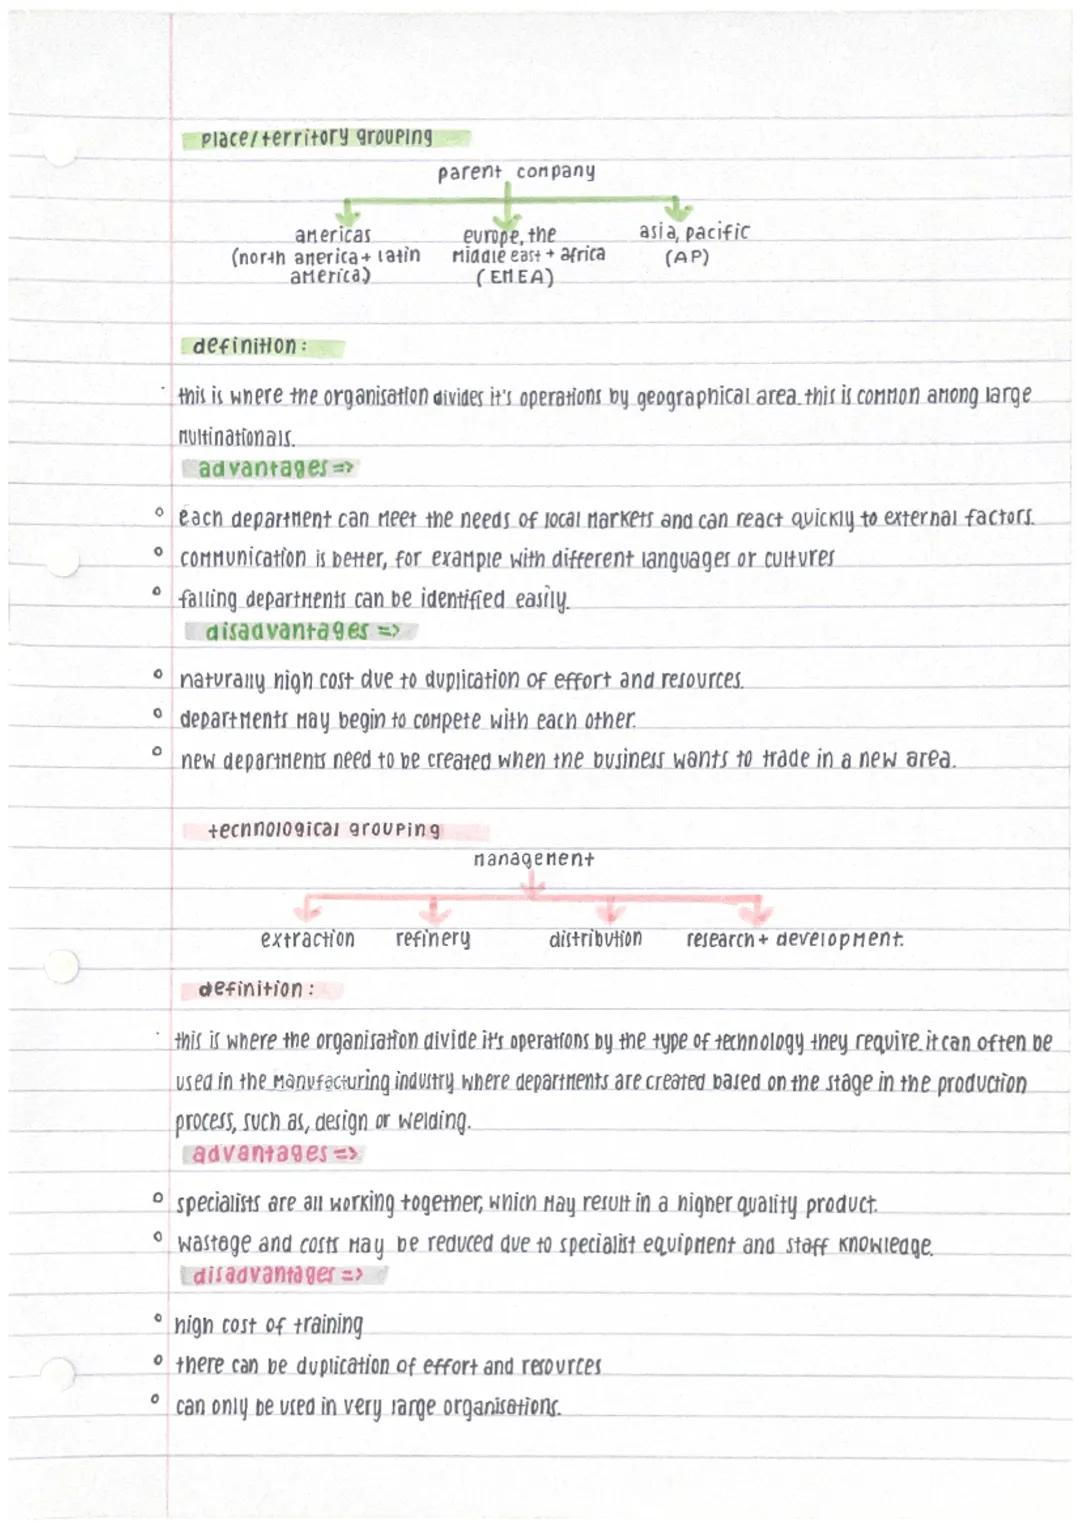 place/territory grouping
parent company
americas
(north america + latin
america)
europe, the
middle east + africa
(EMEA)
asia, pacific
(AP)
definition:
this is where the organisation divides it's operations by geographical area. this is common among large
multinationals.
advantages =>
each department can meet the needs of local markets and can react quickly to external factors.
communication is better, for example with different languages or cultures
failing departments can be identified easily.
disadvantages =>
naturally high cost due to duplication of effort and resources.
departments may begin to compete with each other.
new departments need to be created when the business wants to trade in a new area.
technological grouping
management
extraction refinery distribution research + development.
definition:
this is where the organisation divide it's operations by the type of technology they require. it can often be
used in the manufacturing industry where departments are created based on the stage in the production
process, such as, design or welding.
advantages =>
specialists are all working together, which may result in a higher quality product.
wastage and costs may be reduced due to specialist equipment and staff knowledge.
disadvantages =>
high cost of training
there can be duplication of effort and resources
can only be used in very large organisations.